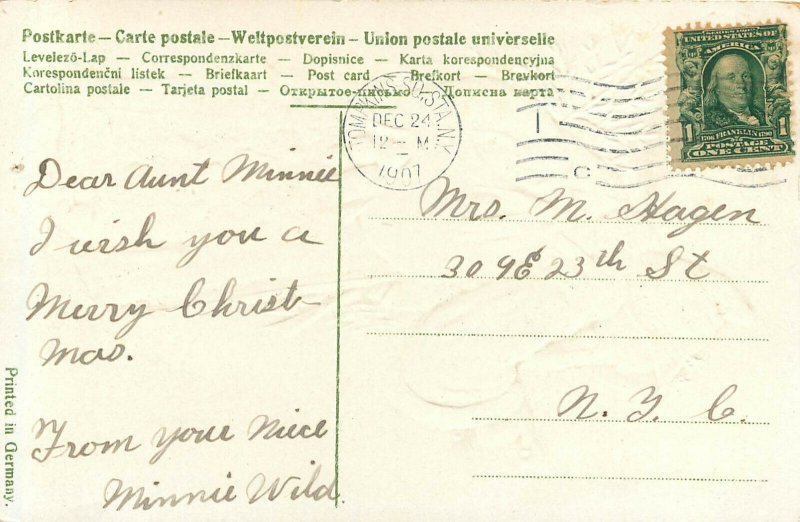 Postkarte – Carte postale – Weltpostverein – Union postale universelle
Levelező-Lap — Correspondenzkarte — Dopisnice — Karta korespondencyjna
Korespondenční lístek — Briefkaart — Post card — Brefkort — Brevkort
Cartolina postale — Tarjeta postal — Открытое-письмо Дописна карта
TOMPKINS SQ. STA. N.Y.
DEC 24
12 - M
1907
SERIES 1902
UNITED STATES OF
AMERICA
1706 FRANKLIN 1790
1 POSTAGE 1
ONE CENT
Dear Aunt Minnie
I wish you a
Merry Christ
mas.
From your Niece
Minnie Wild.
Mrs. M. Hagen
309 E 23th St
N. Y. C.
Printed in Germany.